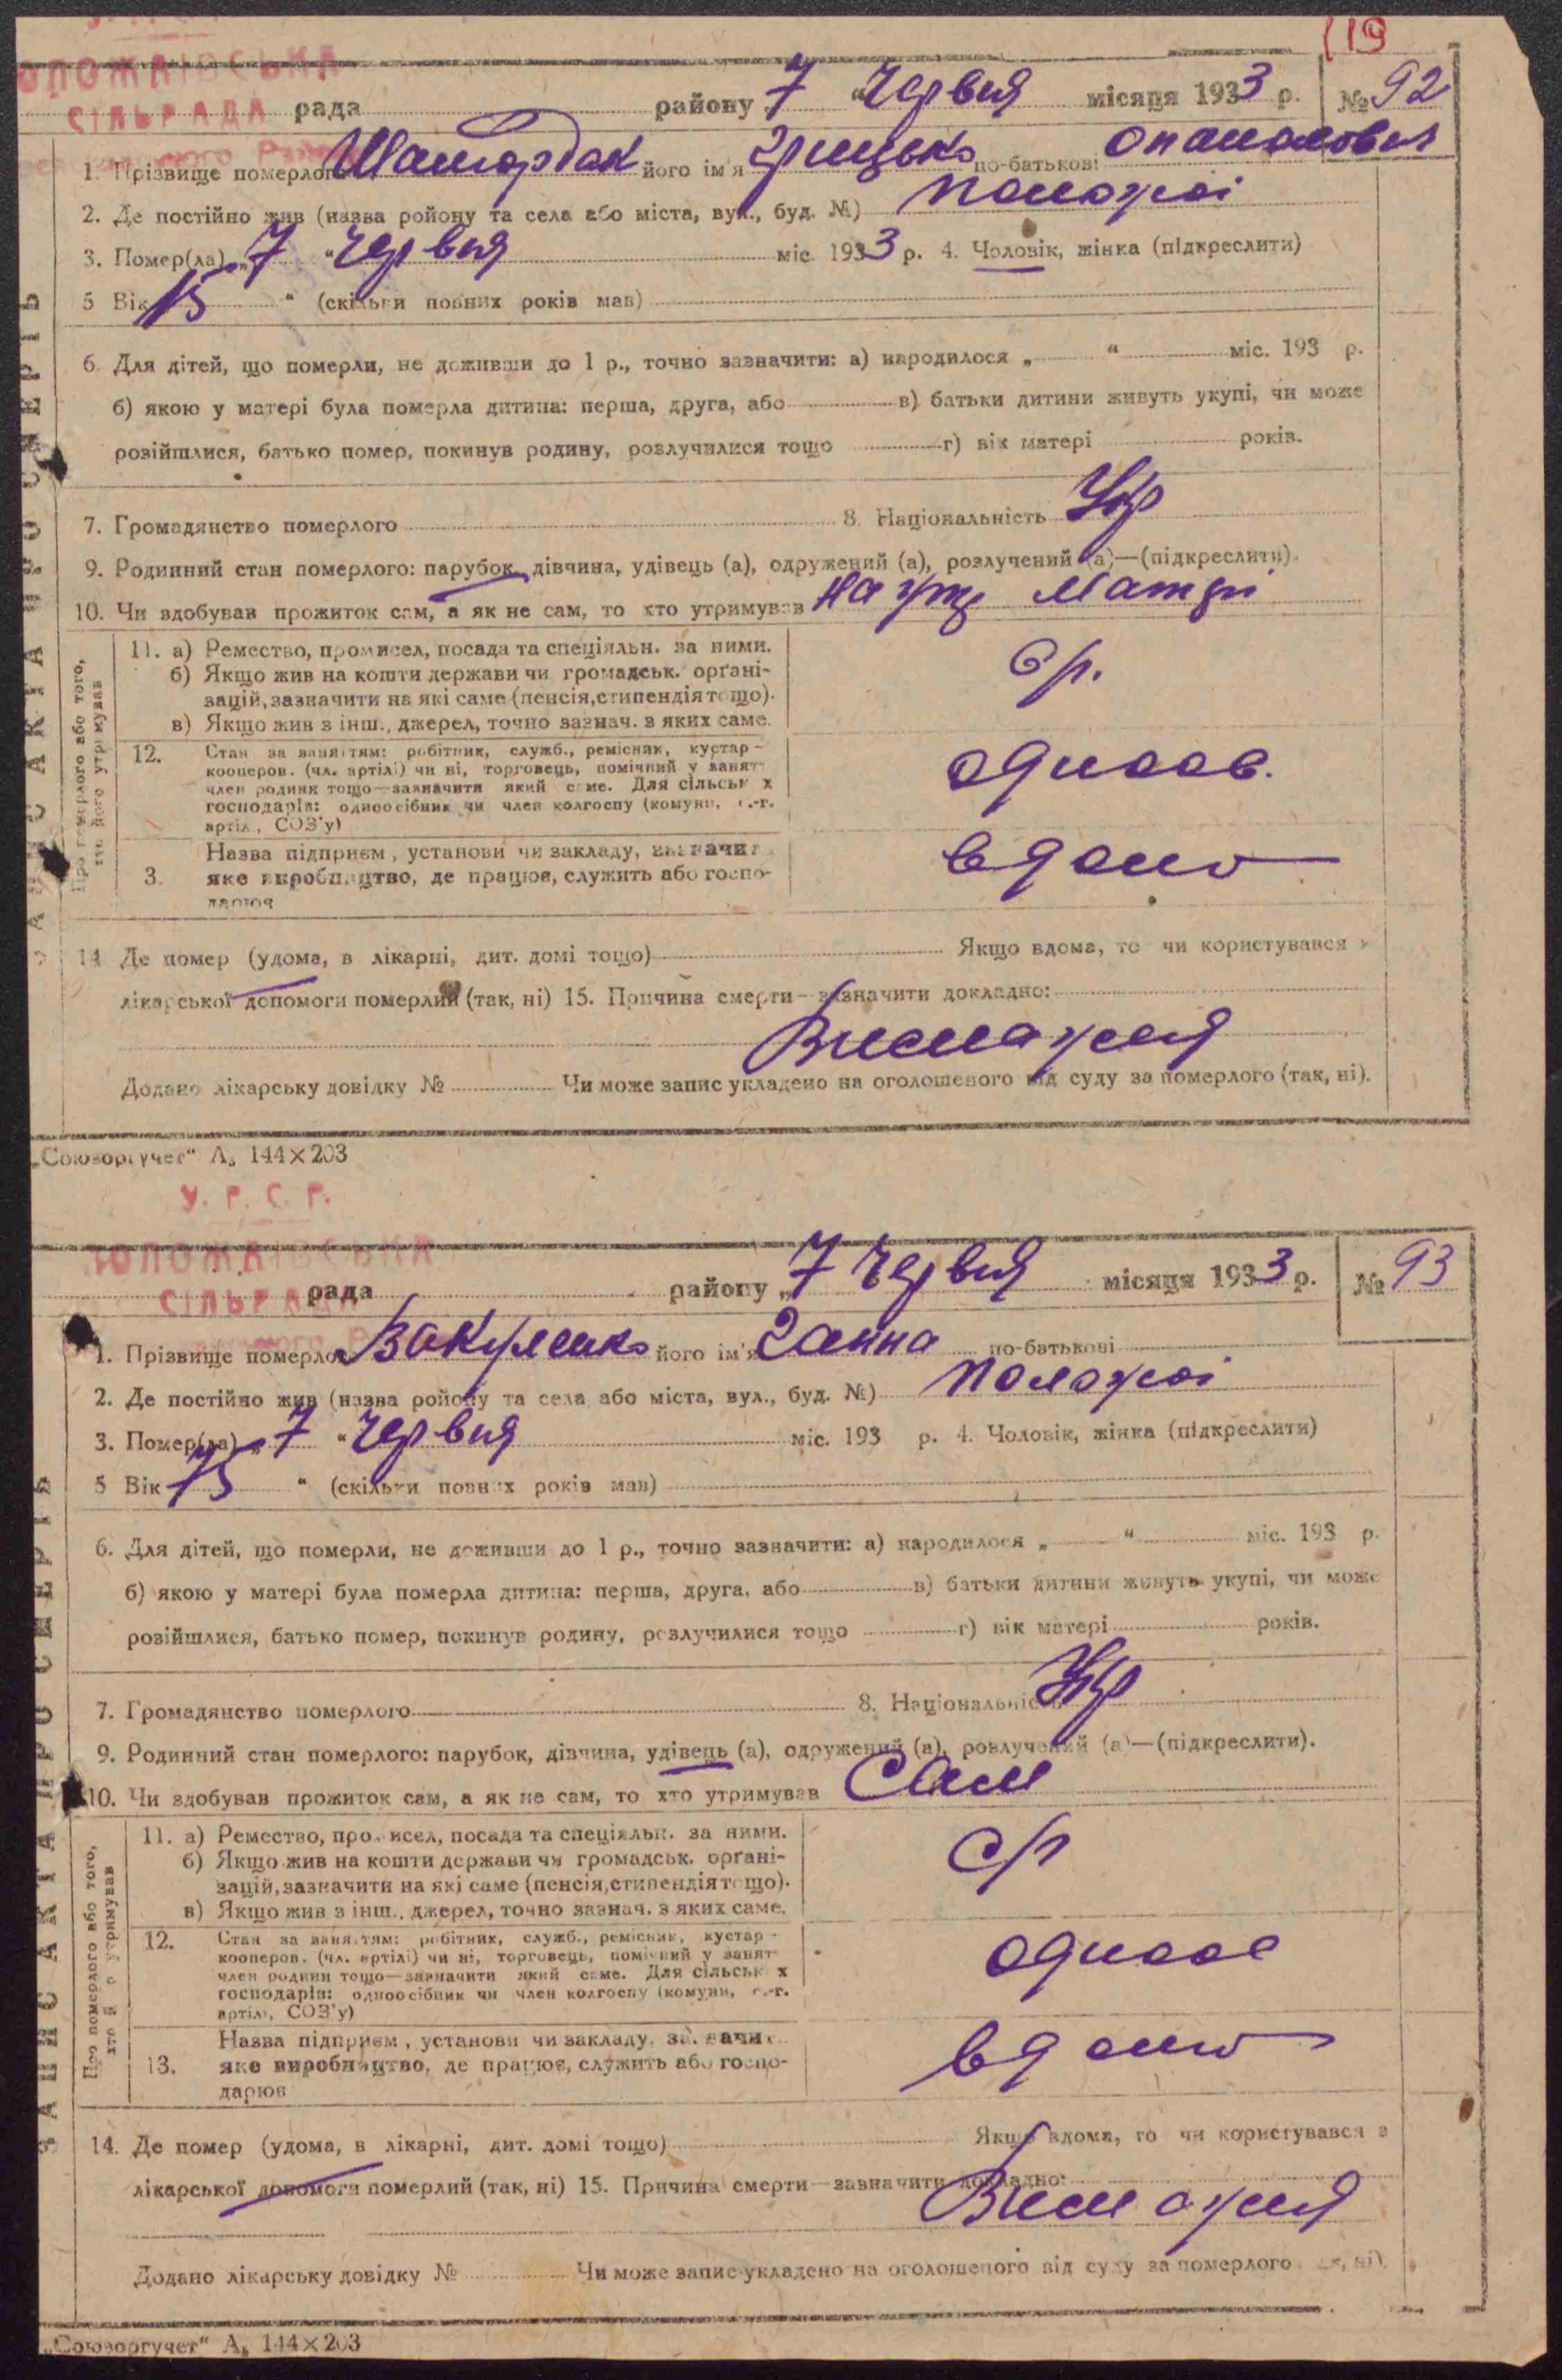 (19
ПОЛОЖАЇВСЬКА
СІЛЬРАДА рада району „7 “ Червня місяця 1933 р. № 92
1. Прізвище померлого його ім'я Грицько по-батькові
2. Де постійно жив (назва ройону та села або міста, вул., буд. №) Положаї
3. Помер(ла) „7 “ Червня міс. 1933 р. 4. Чоловік, жінка (підкреслити)
5 Вік 15 “ (скільки повних років мав)
6. Для дітей, що померли, не доживши до 1 р., точно зазначити: а) народилося „ “ міс. 193 р.
б) якою у матері була померла дитина: перша, друга, або в) батьки дитини живуть укупі, чи може
розійшлися, батько помер, покинув родину, розлучилися тощо г) вік матері років.
7. Громадянство померлого 8. Національність Укр
9. Родинний стан померлого: парубок, дівчина, удівець (а), одружений (а), розлучений (а)—(підкреслити).
10. Чи здобував прожиток сам, а як не сам, то хто утримував На утр Матері
Про померлого або того,
хто його утримував
11. а) Ремество, промисел, посада та спеціяльн. за ними.
б) Якщо жив на кошти держави чи громадськ. орґані-
зацій, зазначити на які саме (пенсія, стипендія тощо).
в) Якщо жив з інш., джерел, точно зазнач. з яких саме.
12. Стан за заняттям: робітник, служб., ремісник, кустар-
кооперов. (чл. артілі) чи ні, торговець, помічний у занят
член родини тощо—зазначити який саме. Для сільськ х
господарів: одноосібник чи член колгоспу (комуни, с.-г.
артіл., СОЗ'у)
одноос.
Назва підприєм., установи чи закладу, зазначит
3. яке виробництво, де працює, служить або госпо-
дарює
вдома
14 Де помер (удома, в лікарні, дит. домі тощо) Якщо вдома, то чи користувався з
лікарської допомоги померлий (так, ні) 15. Причина смерти—зазначити докладно:
Виснаження
Додано лікарську довідку № Чи може запис укладено на оголошеного від суду за померлого (так, ні).
ЗАПИС АКТА ПРО СМЕРТЬ
„Союзоргучет“ А₅ 144×203
У. Р. С. Р.
ПОЛОЖАЇВСЬКА
СІЛЬРАДА рада району „7 Червня місяця 1933 р. № 93
1. Прізвище померло Вакуленко його ім'я Ганна по-батькові
2. Де постійно жив (назва ройону та села або міста, вул., буд. №) Положаї
3. Помер(ла) „7 “ Червня міс. 193 р. 4. Чоловік, жінка (підкреслити)
5 Вік 75 “ (скільки повних років мав)
6. Для дітей, що померли, не доживши до 1 р., точно зазначити: а) народилося „ “ міс. 193 р.
б) якою у матері була померла дитина: перша, друга, або в) батьки дитини живуть укупі, чи може
розійшлися, батько помер, покинув родину, розлучилися тощо г) вік матері років.
7. Громадянство померлого 8. Національність Укр
9. Родинний стан померлого: парубок, дівчина, удівець (а), одружений (а), розлучений (а)—(підкреслити).
10. Чи здобував прожиток сам, а як не сам, то хто утримував Сам
Про померлого або того,
хто й о утримував
11. а) Ремество, промисел, посада та спеціяльн. за ними.
б) Якщо жив на кошти держави чи громадськ. орґані-
зацій, зазначити на які саме (пенсія, стипендія тощо).
в) Якщо жив з інш., джерел, точно зазнач. з яких саме.
с/г
12. Стан за заняттям: робітник, служб., ремісник, кустар-
кооперов. (чл. артілі) чи ні, торговець, помічний у занят
член родини тощо—зазначити який саме. Для сільськ х
господарів: одноосібник чи член колгоспу (комуни, с.-г.
артілі, СОЗ'у)
одноос
Назва підприєм., установи чи закладу, зазначит
13. яке виробництво, де працює, служить або госпо-
дарює
вдома
14. Де помер (удома, в лікарні, дит. домі тощо) Якщо вдома, то чи користувався з
лікарської допомоги померлий (так, ні) 15. Причина смерти—зазначити докладно:
Виснаження
Додано лікарську довідку № Чи може запис укладено на оголошеного від суду за померлого ні).
ЗАПИС АКТА ПРО СМЕРТЬ
„Союзоргучет“ А₅ 144×203